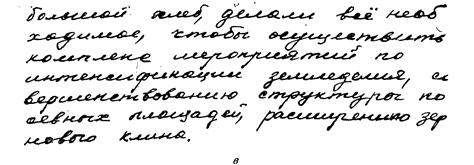 большой хлеб, делали всё необ
ходимое, чтобы осуществить
комплекс мероприятий по
интенсификации земледелия, со
вершенствованию структуры по
севных площадей, расширению зер
нового клина.
в